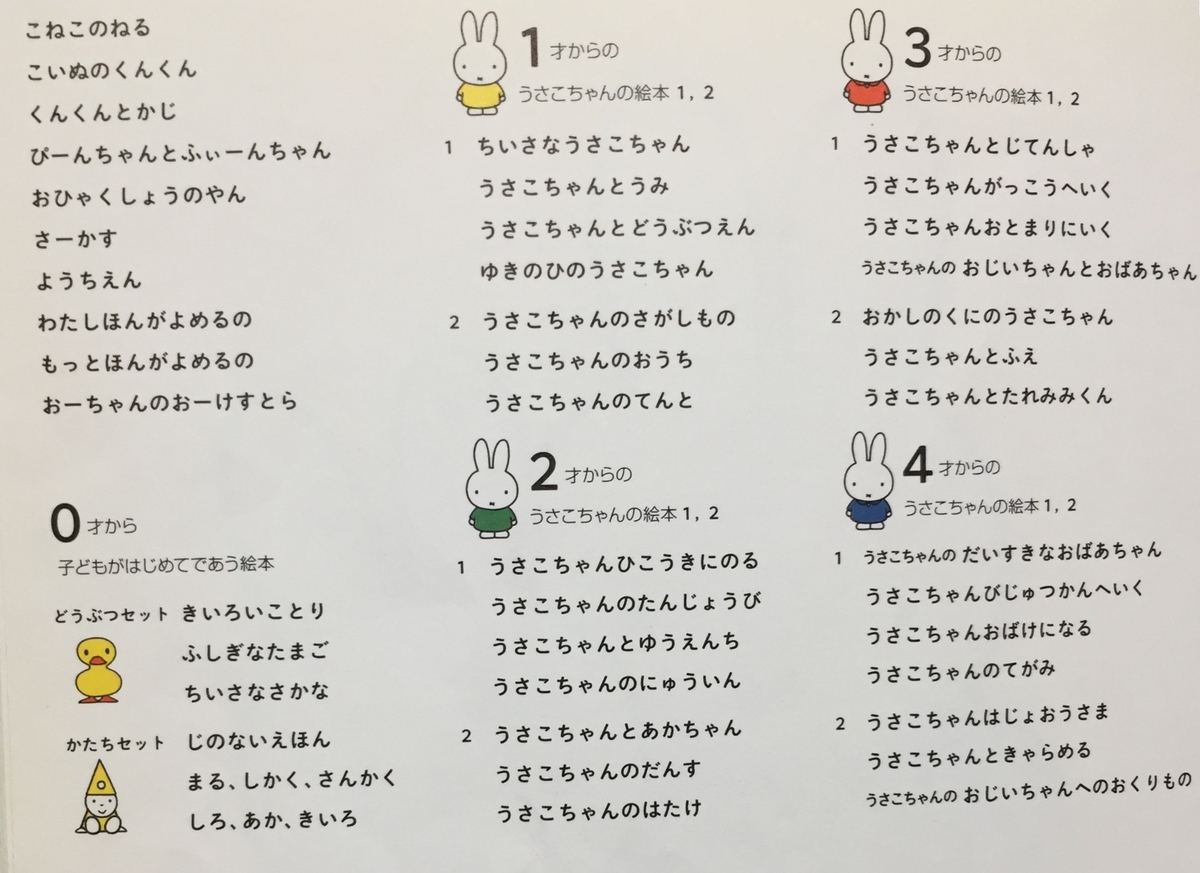 こねこのねる
こいぬのくんくん
くんくんとかじ
ぴーんちゃんとふぃーんちゃん
おひゃくしょうのやん
さーかす
ようちえん
わたしほんがよめるの
もっとほんがよめるの
おーちゃんのおーけすとら
0才から
子どもがはじめてであう絵本
どうぶつセット きいろいことり
ふしぎなたまご
ちいさなさかな
かたちセット じのないえほん
まる、しかく、さんかく
しろ、あか、きいろ
1才からの
うさこちゃんの絵本1, 2
1 ちいさなうさこちゃん
うさこちゃんとうみ
うさこちゃんとどうぶつえん
ゆきのひのうさこちゃん
2 うさこちゃんのさがしもの
うさこちゃんのおうち
うさこちゃんのてんと
2才からの
うさこちゃんの絵本1, 2
1 うさこちゃんひこうきにのる
うさこちゃんのたんじょうび
うさこちゃんとゆうえんち
うさこちゃんのにゅういん
2 うさこちゃんとあかちゃん
うさこちゃんのだんす
うさこちゃんのはたけ
3才からの
うさこちゃんの絵本1, 2
1 うさこちゃんとじてんしゃ
うさこちゃんがっこうへいく
うさこちゃんおとまりにいく
うさこちゃんの おじいちゃんとおばあちゃん
2 おかしのくにのうさこちゃん
うさこちゃんとふえ
うさこちゃんとたれみみくん
4才からの
うさこちゃんの絵本1, 2
1 うさこちゃんの だいすきなおばあちゃん
うさこちゃんびじゅつかんへいく
うさこちゃんおばけになる
うさこちゃんのてがみ
2 うさこちゃんはじょおうさま
うさこちゃんときゃらめる
うさこちゃんの おじいちゃんへのおくりもの